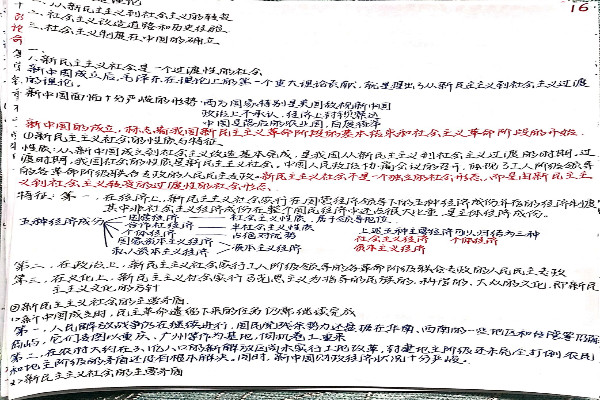 16
一、从新民主主义到社会主义的转变
二、社会主义改造道路和历史经验
三、社会主义制度在中国的确立
一、
新民主主义社会是一个过渡性的社会
新中国成立后，毛泽东在理论上的第一个重大理论贡献，就是提出了从新民主主义到社会主义过渡
的理论。
新中国面临十分严峻的形势：西方国家特别是美国敌视新中国
政治上不承认，经济上封锁禁运
中国是落后的农业国，百废待举
新中国的成立，标志着我国新民主主义革命阶段的基本结束和社会主义革命阶段的开始。
①新民主主义社会的性质与特征。
性质：从新中国成立到社会主义改造基本完成，是我国从新民主主义到社会主义过渡的时期，过
渡时期，我国社会的性质是新民主主义社会。中国人民政治协商会议的召开，体现了工人阶级领导
的各革命阶级联合专政的人民民主专政。新民主主义社会不是一个独立的社会形态，而是由新民主主
义到社会主义转变的过渡性的社会形态。
特征：第一，在经济上，新民主主义社会实行在国营经济领导下的五种经济成份并存的经济制度
其中社会主义经济成份在整个国民经济中还占很大比重，是主体经济成份。
五种经济成份 国营经济——社会主义性质，居于领导地位
合作社经济——半社会主义性质
个体经济——占绝对优势 上述五种主要经济可以归结为三种
国家资本主义经济 社会主义经济 个体经济
私人资本主义经济 >资本主义经济 资本主义经济
第二、在政治上，新民主主义社会实行工人阶级领导的各革命阶级联合专政的人民民主专政
第三、在文化上，新民主主义社会实行以马克思主义为指导的民族的、科学的、大众的文化，即新民
主主义文化的方针
②新民主主义社会的主要矛盾.
⑴新中国成立时，民主革命遗留下来的任务仍需继续完成
第一，人民解放战争仍在继续进行，国民党残余势力还盘踞在华南、西南的一些地区和台湾等沿海
岛屿，它们妄图以重庆、广州等作为基地，伺机卷土重来
第二、在农村大约有3亿人口的新解放区尚未实行土地改革，封建地主阶级还未完全打倒，农民
和地主阶级的矛盾还没有根本解决。同时，新中国财政经济状况十分严峻。
⑵新民主主义社会的主要矛盾